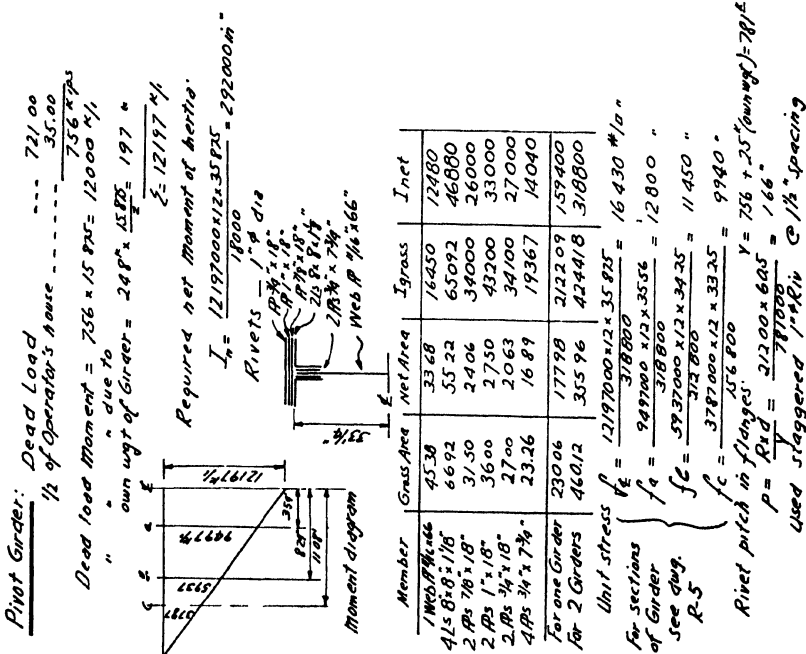 Pivot Girder: Dead Load --- 721.00
1/2 of Operator's house ------ 35.00
756 kips
Dead load Moment = 756 x 15.875 = 12000 k/,
" " " due to
own wgt of Girder = 24.8k x 15.875/2 = 197 "
Σ = 12197 k/,
Required net moment of Inertia.
In = 12197000x12x35.875 / 18000 = 292000 in"
Rivets - 1"ø dia
℞ 3/4" x 18"
℞ 1" x 18"
℞ 7/8" x 18"
2Ls 8x8x1 1/8
2℞s 3/4" x 7 3/4"
Web ℞ 11/16"x66"
33 1/4"
12197k/,
9497k/,
5937
3787
3.54'
8.28'
11.08'
₵
a
b
c
Moment diagram
Member Gross Area Net Area Igross Inet
1 Web ℞ 11/16x66 45.38 33.68 16450 12480
4Ls 8x8x1 1/8" 66.92 55.22 65092 46880
2℞s 7/8"x18" 31.50 24.06 34000 26000
2℞s 1"x18" 36.00 27.50 43200 33000
2℞s 3/4"x18" 27.00 20.63 34100 27000
4℞s 3/4"x7 3/4" 23.26 16.89 19367 14040
For one Girder 230.06 177.98 212209 159400
For 2 Girders 460.12 355.96 424418 318800
Unit stress f₵ = 12197000x12x35.875 / 318800 = 16430 #/□"
For sections of Girder see dwg. R-5
fa = 9497000x12x35.56 / 318800 = 12800 "
fb = 5937000x12x34.25 / 212800 = 11450 "
fc = 3787000x12x33.25 / 156800 = 9940 "
Rivet pitch in flanges: V = 756 + 25k (own wgt) = 781k
p = Rxd / V = 21200x60.5 / 781000 = 1.66"
Used staggered 1"ø Riv @ 1 1/2" spacing